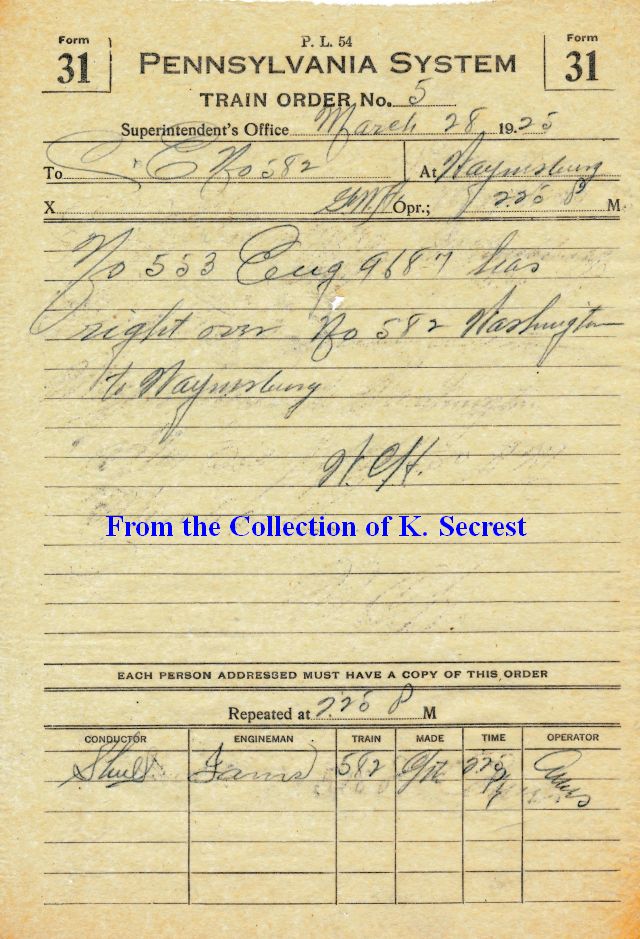 Form 31
P. L. 54
Form 31
PENNSYLVANIA SYSTEM
TRAIN ORDER No. 5
Superintendent's Office March 28 1925
To C & E No 582 At Waynesburg
X Opr.; 2.25 P M
No 553 Eng. 9687 has
right over No 582 Washington
to Waynesburg
From the Collection of K. Secrest
EACH PERSON ADDRESSED MUST HAVE A COPY OF THIS ORDER
Repeated at 2.25 P M
CONDUCTOR ENGINEMAN TRAIN MADE TIME OPERATOR
582 225